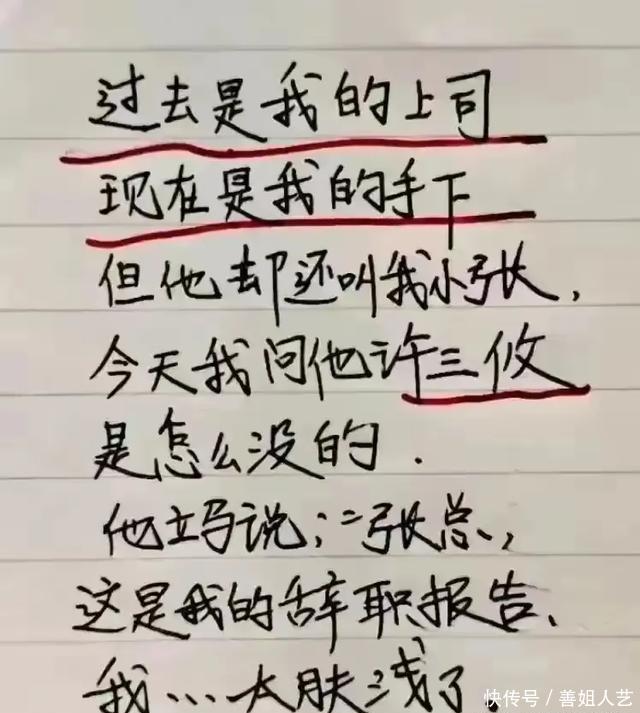 过去是我的上司
现在是我的手下
但他却还叫我小张,
今天我问他许三攸
是怎么没的.
他立马说;二张总,
这是我的辞职报告、
我...太肤浅了
快传号/善姐人艺